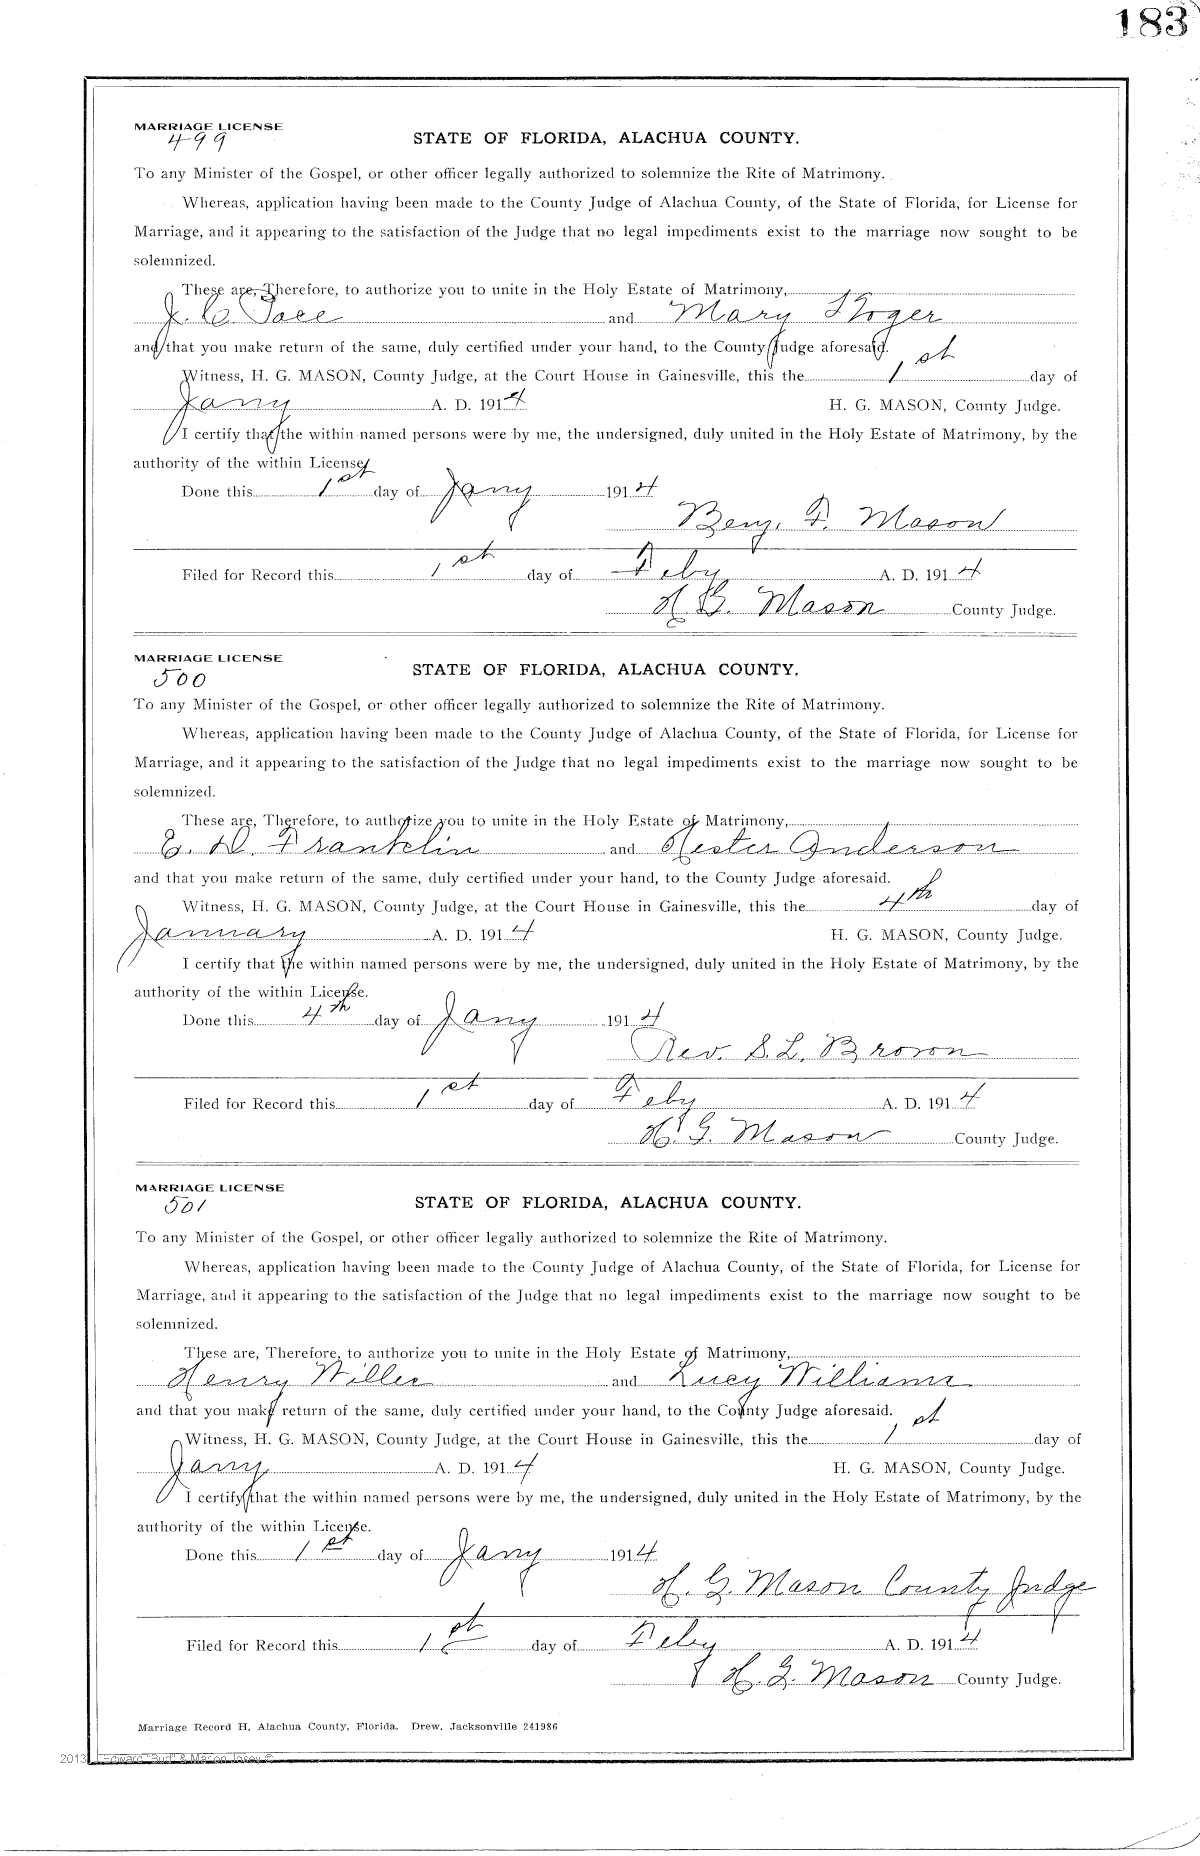 183
MARRIAGE LICENSE
499
STATE OF FLORIDA, ALACHUA COUNTY.
To any Minister of the Gospel, or other officer legally authorized to solemnize the Rite of Matrimony.
Whereas, application having been made to the County Judge of Alachua County, of the State of Florida, for License for
Marriage, and it appearing to the satisfaction of the Judge that no legal impediments exist to the marriage now sought to be
solemnized.
These are, Therefore, to authorize you to unite in the Holy Estate of Matrimony,
J. C. and Mary
and that you make return of the same, duly certified under your hand, to the County Judge aforesaid.
Witness, H. G. MASON, County Judge, at the Court House in Gainesville, this the 1st day of
Jany A. D. 1914 H. G. MASON, County Judge.
I certify that the within named persons were by me, the undersigned, duly united in the Holy Estate of Matrimony, by the
authority of the within License
Done this 1st day of Jany 1914
Benj. F. Mason
Filed for Record this 1st day of Feby A. D. 1914
H. G. Mason County Judge.
MARRIAGE LICENSE
500
STATE OF FLORIDA, ALACHUA COUNTY.
To any Minister of the Gospel, or other officer legally authorized to solemnize the Rite of Matrimony.
Whereas, application having been made to the County Judge of Alachua County, of the State of Florida, for License for
Marriage, and it appearing to the satisfaction of the Judge that no legal impediments exist to the marriage now sought to be
solemnized.
These are, Therefore, to authorize you to unite in the Holy Estate of Matrimony,
E. D. Franklin and Hester Anderson
and that you make return of the same, duly certified under your hand, to the County Judge aforesaid.
Witness, H. G. MASON, County Judge, at the Court House in Gainesville, this the 4th day of
January A. D. 1914 H. G. MASON, County Judge.
I certify that the within named persons were by me, the undersigned, duly united in the Holy Estate of Matrimony, by the
authority of the within License.
Done this 4th day of Jany 1914
Rev. S. L. Brown
Filed for Record this 1st day of Feby A. D. 1914
H. G. Mason County Judge.
MARRIAGE LICENSE
501
STATE OF FLORIDA, ALACHUA COUNTY.
To any Minister of the Gospel, or other officer legally authorized to solemnize the Rite of Matrimony.
Whereas, application having been made to the County Judge of Alachua County, of the State of Florida, for License for
Marriage, and it appearing to the satisfaction of the Judge that no legal impediments exist to the marriage now sought to be
solemnized.
These are, Therefore, to authorize you to unite in the Holy Estate of Matrimony,
Henry and Lucy Williams
and that you make return of the same, duly certified under your hand, to the County Judge aforesaid.
Witness, H. G. MASON, County Judge, at the Court House in Gainesville, this the 1st day of
Jany A. D. 1914 H. G. MASON, County Judge.
I certify that the within named persons were by me, the undersigned, duly united in the Holy Estate of Matrimony, by the
authority of the within License.
Done this 1st day of Jany 1914
H. G. Mason County Judge
Filed for Record this 1st day of Feby A. D. 1914
H. G. Mason County Judge.
Marriage Record H, Alachua County, Florida. Drew, Jacksonville 241986
2013 Edward "Bud" & Mason Tasey ©